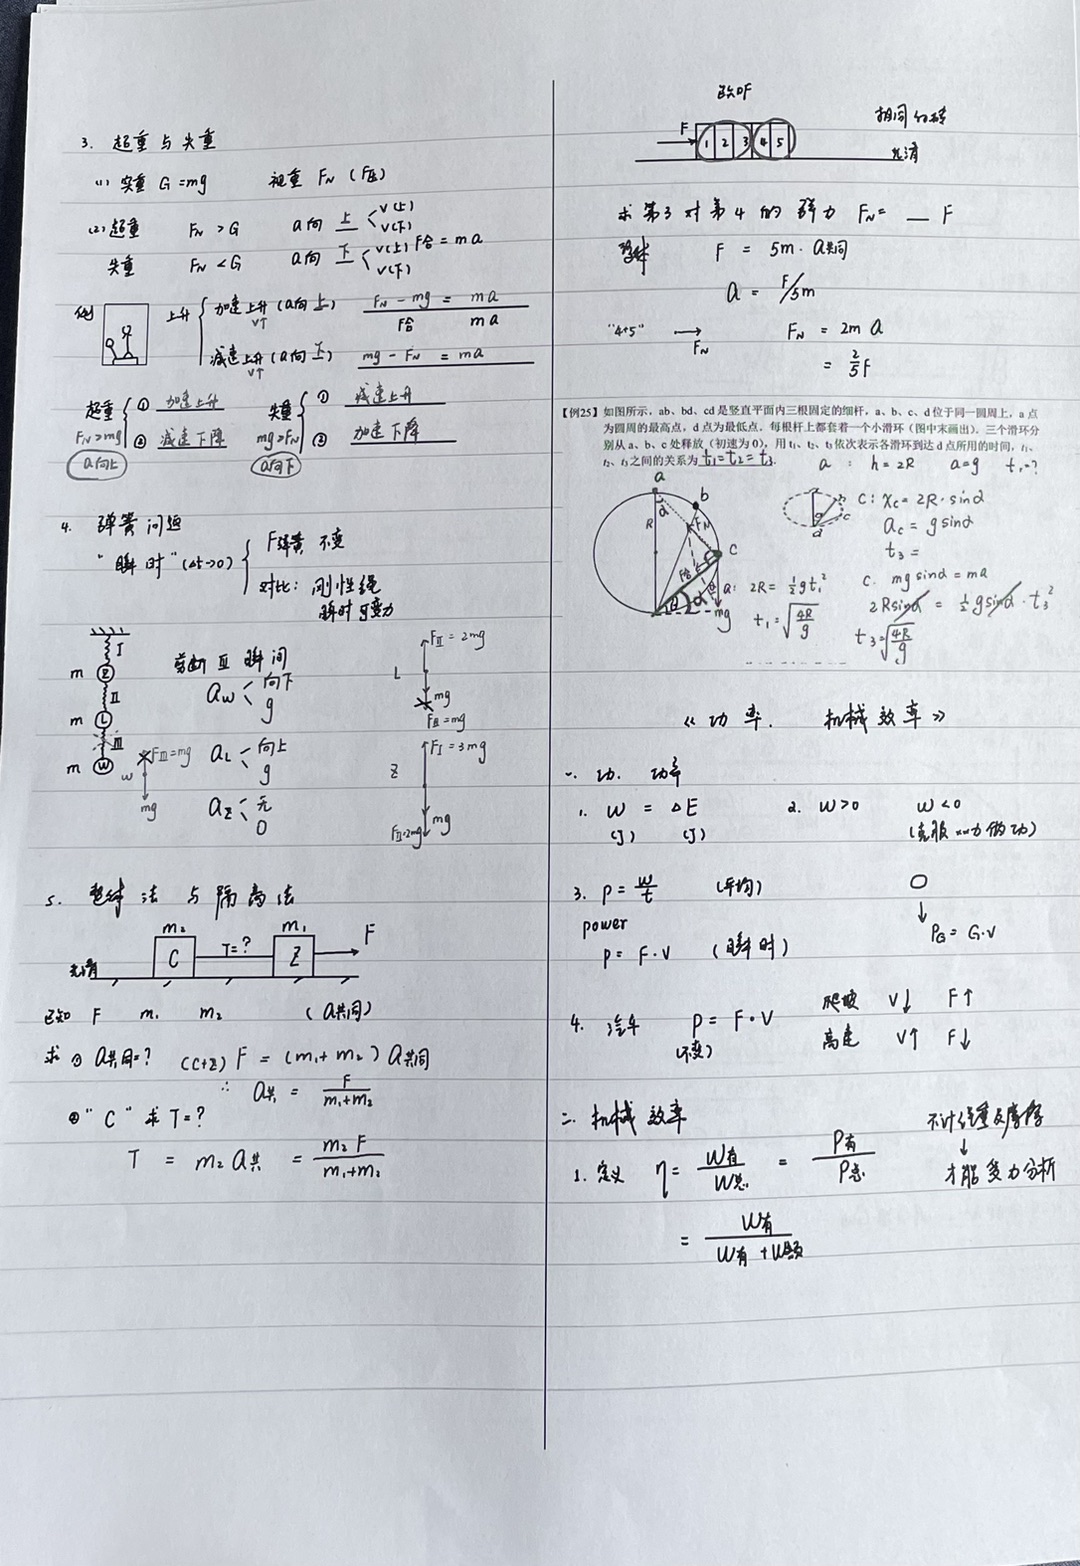 3. 超重与失重
(1) 实重 G=mg 视重 FN (F压)
(2) 超重 FN>G a向 上 V(上) V(下)
失重 FN<G a向 下 V(上) V(下) F合=ma
例 上升 加速上升(a向上) V↑ FN-mg = ma
F合 ma
减速上升(a向下) V↑ mg-FN = ma
超重 ① 加速上升 失重 ① 减速上升
FN>mg ② 减速下降 mg>FN ② 加速下降
a向上 a向下
4. 弹簧问题
"瞬时"(Δt→0) F弹簧 不变
对比: 刚性绳
瞬时可变力
I
m Z 剪断Ⅲ瞬间
Ⅱ aW 向下 g
m L
Ⅲ aL 向上 g
m W
aZ 无 0
W FⅢ=mg mg
L FⅡ=2mg mg FⅢ=mg
Z FⅠ=3mg mg FⅡ=2mg
5. 整体法与隔离法
m₂ m₁
C T=? Z F
光滑
已知 F m₁ m₂ (a共同)
求 ① a共同=? (C+Z) F = (m₁+m₂) a共同
∴ a共 = F/(m₁+m₂)
②"C" 求 T=?
T = m₂ a共 = m₂F/(m₁+m₂)
已知F
F 1 2 3 4 5 相同的砖
光滑
求第3对第4的弹力 FN= __ F
整体 F = 5m·a共同
a = F/5m
"4+5" → FN FN = 2m a
= 2/5 F
【例25】如图所示，ab、bd、cd是竖直平面内三根固定的细杆，a、b、c、d位于同一圆周上，a点
为圆周的最高点，d点为最低点，每根杆上都套着一个小滑环（图中未画出），三个滑环分
别从a、b、c处释放（初速为0），用t₁、t₂、t₃依次表示各滑环到达d点所用的时间，t₁、
t₂、t₃之间的关系为 t₁=t₂=t₃.
a : h=2R a=g t₁=?
a b c R α FN F合 θ mg
C: xc=2R·sinα
ac=gsinα
t₃=
a: 2R=½gt₁²
t₁=√(4R/g)
C. mgsinα=ma
2Rsinα = ½gsinα·t₃²
t₃=√(4R/g)
《功率. 机械效率》
一. 功. 功率
1. W = ΔE 2. W>0 W<0
(J) (J) (克服xx力做功)
3. P=W/t (平均)
power
P=F·V (瞬时)
PG=G·V
4. 汽车 P=F·V 爬坡 V↓ F↑
(不变) 高速 V↑ F↓
二. 机械效率 不计绳重及摩擦
↓
1. 定义 η= W有/W总 = P有/P总 才能受力分析
= W有/(W有+W额)